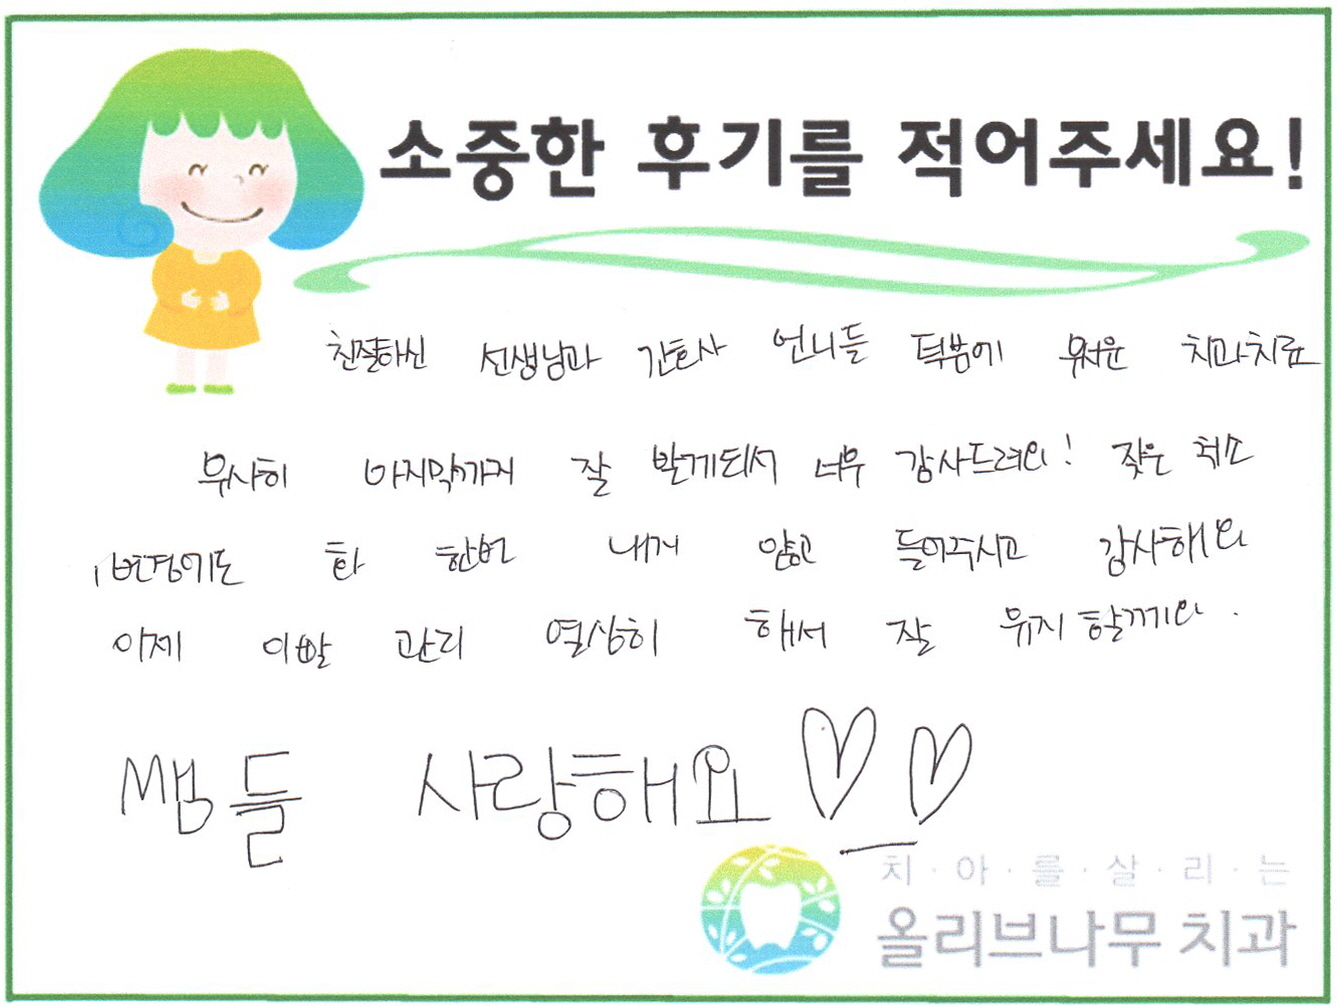 소중한 후기를 적어주세요!
친절하신 선생님과 간호사 언니들 덕분에 무서운 치과치료
무사히 마지막까지 잘 받게되서 너무 감사드려요! 잦은 취소
변경에도 화 한번 내지 않고 들어주시고 감사해요
이제 이빨 관리 열심히 해서 잘 유지 할께요.
쌤들 사랑해요♡♡
치·아·를·살·리·는
올리브나무 치과